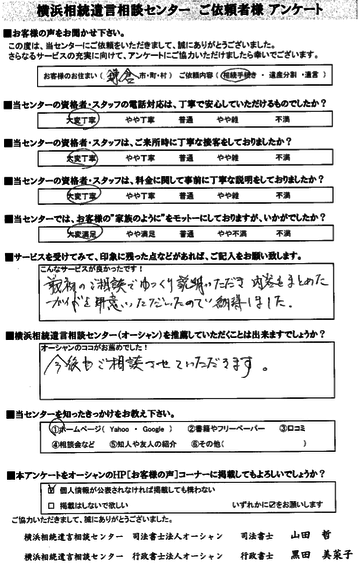 横浜相続遺言相談センター ご依頼者様 アンケート
■お客様の声をお聞かせ下さい。
この度は、当センターにご依頼をいただきまして、誠にありがとうございました。
さらなるサービスの充実に向けて、アンケートにご協力いただけましたら幸いでございます。
お客様のお住まい( 鎌倉 市・町・村 ) ご依頼内容 ( 相続手続き ・ 遺産分割 ・遺言 )
■当センターの資格者・スタッフの電話対応は、丁寧で安心していただけるものでしたか?
大変丁寧 やや丁寧 普通 やや雑 不満
■当センターの資格者・スタッフは、ご来所時に丁寧な接客をしておりましたか?
大変丁寧 やや丁寧 普通 やや雑 不満
■当センターの資格者・スタッフは、料金に関して事前に丁寧な説明をしておりましたか?
大変丁寧 やや丁寧 普通 やや雑 不満
■当センターでは、お客様の"家族のように"をモットーにしておりますが、いかがでしたか?
大変満足 やや満足 普通 やや不満 不満
■サービスを受けてみて、印象に残った点などがあれば、ご記入をお願い致します。
こんなサービスが良かったです!
最初のご相談でゆっくり説明いただき 内容をまとめた
ガイドを用意いただいたので 納得しました。
■横浜相続遺言相談センター(オーシャン)を推薦していただくことは出来ますでしょうか?
オーシャンのココがお薦めでした!
今後もご相談させていただきます。
■当センターを知ったきっかけをお教え下さい。
①ホームページ( Yahoo ・ Google ) ②書籍やフリーペーパー ③口コミ
④相談会など ⑤知人や友人の紹介 ⑥その他( )
■本アンケートをオーシャンのHP[お客様の声]コーナーに掲載してもよろしいでしょうか?
☑ 個人情報が公表されなければ掲載しても構わない
□ 掲載はしないで欲しい いずれかに☑をお願いします
ご協力いただきまして、誠にありがとうございました。
横浜相続遺言相談センター 司法書士法人オーシャン 司法書士 山田 哲
横浜相続遺言相談センター 行政書士法人オーシャン 行政書士 黒田 美菜子